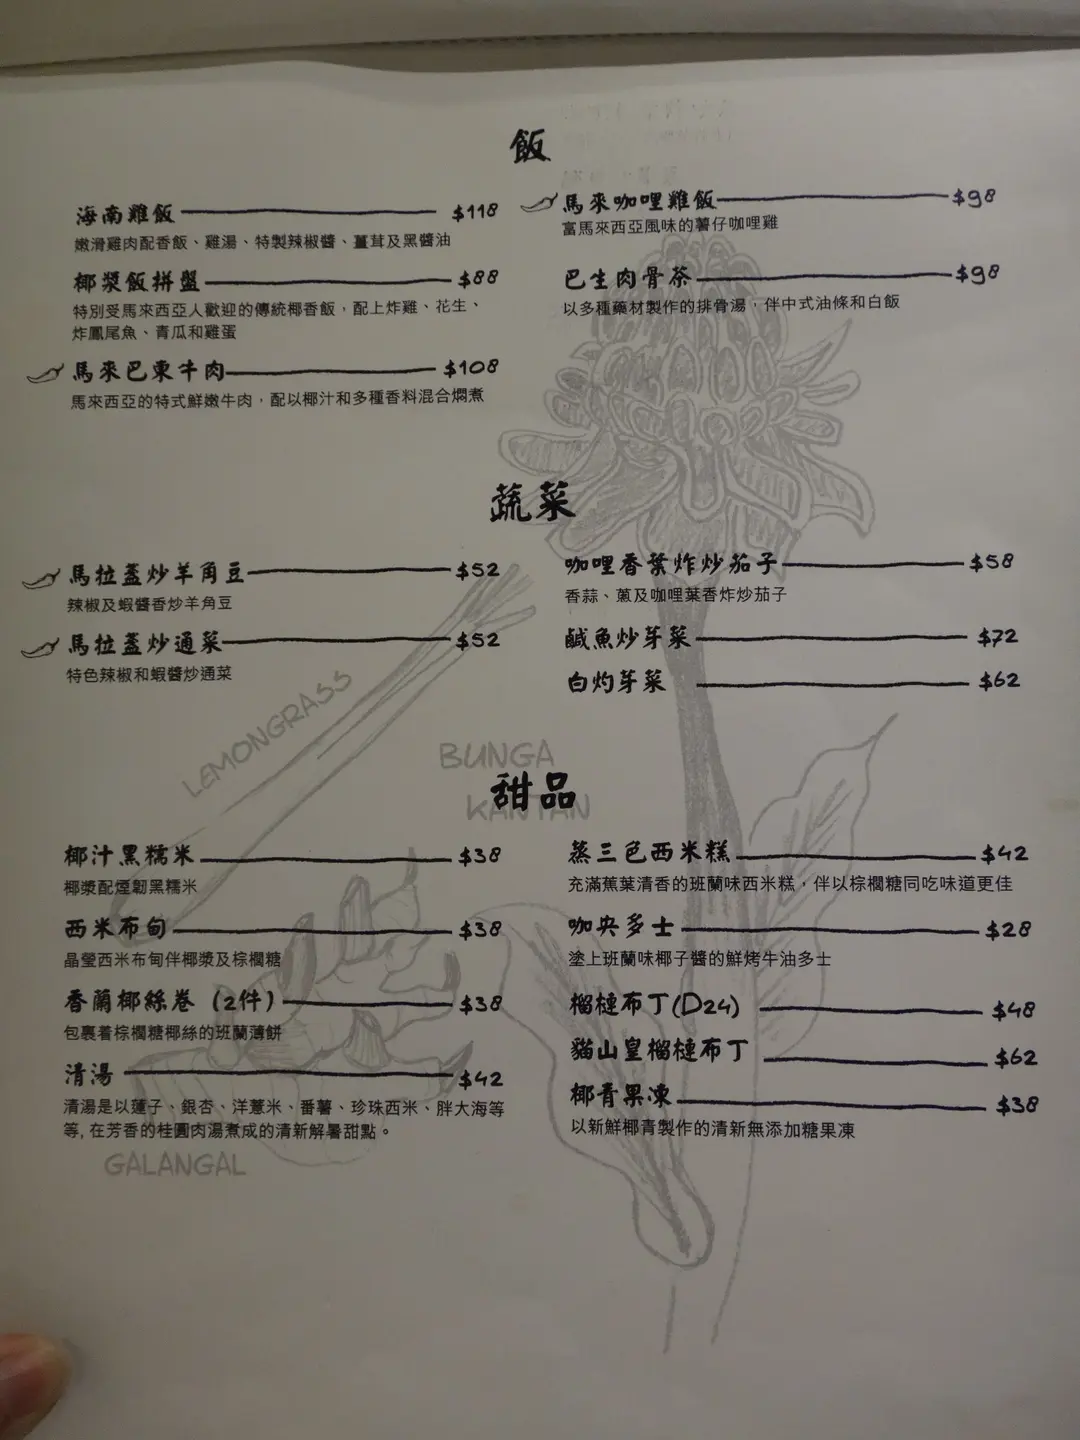 飯
海南雞飯 $118
嫩滑雞肉配香飯、雞湯、特製辣椒醬、薑茸及黑醬油
椰漿飯拼盤 $88
特別受馬來西亞人歡迎的傳統椰香飯，配上炸雞、花生、
炸鳳尾魚、青瓜和雞蛋
馬來巴東牛肉 $108
馬來西亞的特式鮮嫩牛肉，配以椰汁和多種香料混合燜煮
馬來咖哩雞飯 $98
富馬來西亞風味的薯仔咖哩雞
巴生肉骨茶 $98
以多種藥材製作的排骨湯，伴中式油條和白飯
蔬菜
馬拉盞炒羊角豆 $52
辣椒及蝦醬香炒羊角豆
馬拉盞炒通菜 $52
特色辣椒和蝦醬炒通菜
咖哩香葉炸炒茄子 $58
香蒜、蔥及咖哩葉香炸炒茄子
鹹魚炒芽菜 $72
白灼芽菜 $62
LEMONGRASS
BUNGA
KANTAN
甜品
椰汁黑糯米 $38
椰漿配煙韌黑糯米
西米布甸 $38
晶瑩西米布甸伴椰漿及棕櫚糖
香蘭椰絲卷 (2件) $38
包裹着棕櫚糖椰絲的班蘭薄餅
清湯 $42
清湯是以蓮子、銀杏、洋薏米、番薯、珍珠西米、胖大海等
等, 在芳香的桂圓肉湯煮成的清新解暑甜點。
蒸三色西米糕 $42
充滿蕉葉清香的班蘭味西米糕，伴以棕櫚糖同吃味道更佳
咖央多士 $28
塗上班蘭味椰子醬的鮮烤牛油多士
榴槤布丁(D24) $48
貓山皇榴槤布丁 $62
椰青果凍 $38
以新鮮椰青製作的清新無添加糖果凍
GALANGAL